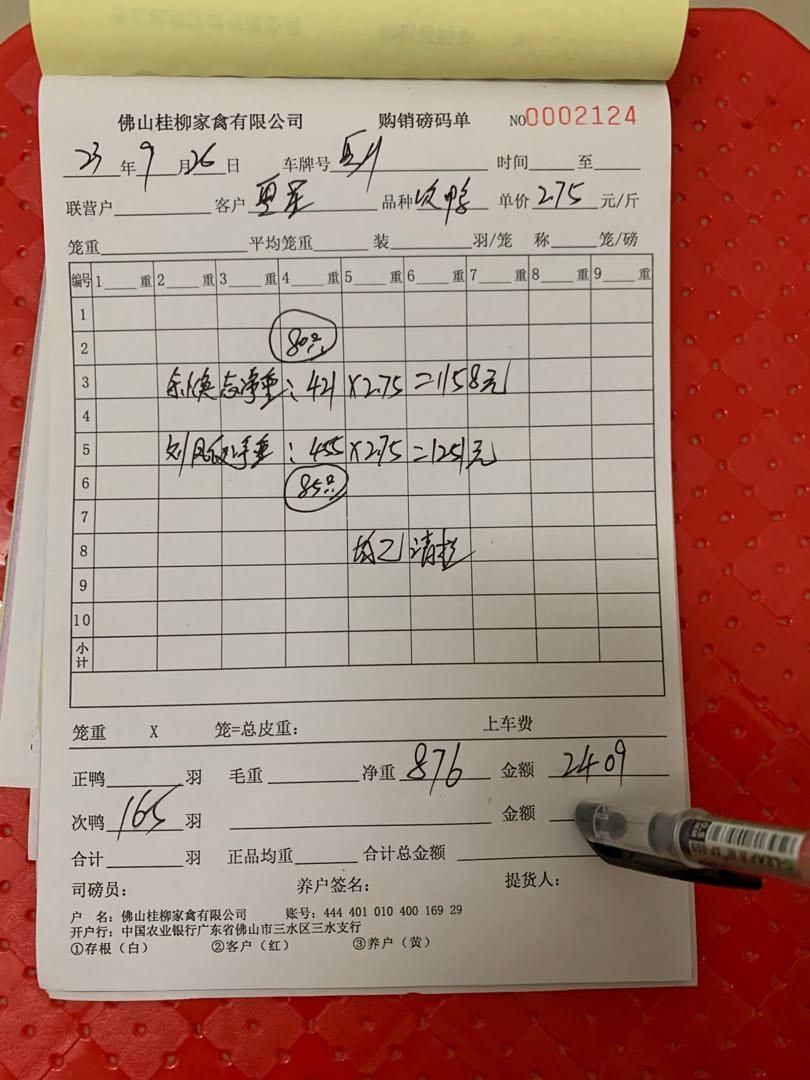 佛山桂柳家禽有限公司 购销磅码单 NO0002124
23年9月26日 车牌号 时间____至____
联营户____ 客户 品种 次鸭 单价 2.75 元/斤
笼重____平均笼重____装____羽/笼 称____笼/磅
编号 1____重 2____重 3____重 4____重 5____重 6____重 7____重 8____重 9____重
1
2 80只
3 净重：421×2.75=1158元
4
5 净重：455×2.75=1251元
6 85只
7
8 均已清栏
9
10
小计
笼重 X 笼=总皮重： 上车费
正鸭____羽 毛重____净重 876 金额 2409
次鸭 165 羽 ____ 金额
合计____羽 正品均重____合计总金额____
司磅员： 养户签名： 提货人：
户 名：佛山桂柳家禽有限公司 账号：444 401 010 400 169 29
开户行：中国农业银行广东省佛山市三水区三水支行
①存根（白） ②客户（红） ③养户（黄）